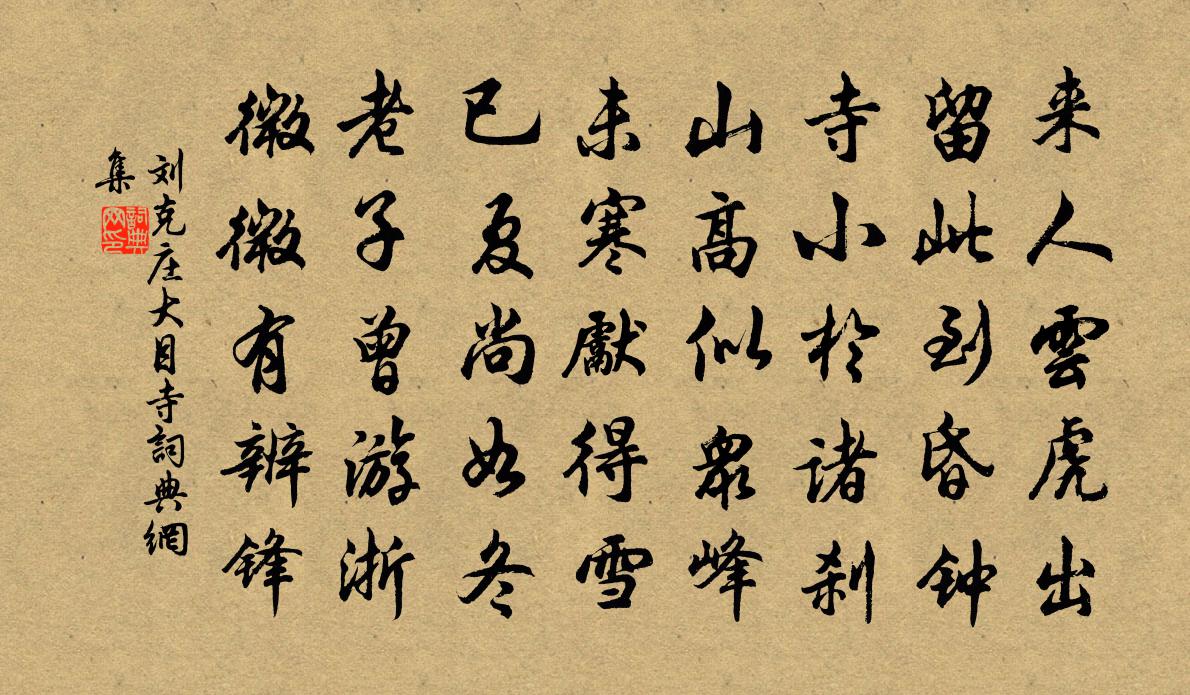 来人雲虎出
留此到昏钟
寺小於諸刹
山高似眾峰
未寒獻得雪
已夏尚如冬
老子曾游浙
微微有辨锋
刘克庄大目寺詞典網
集
詞典
网印